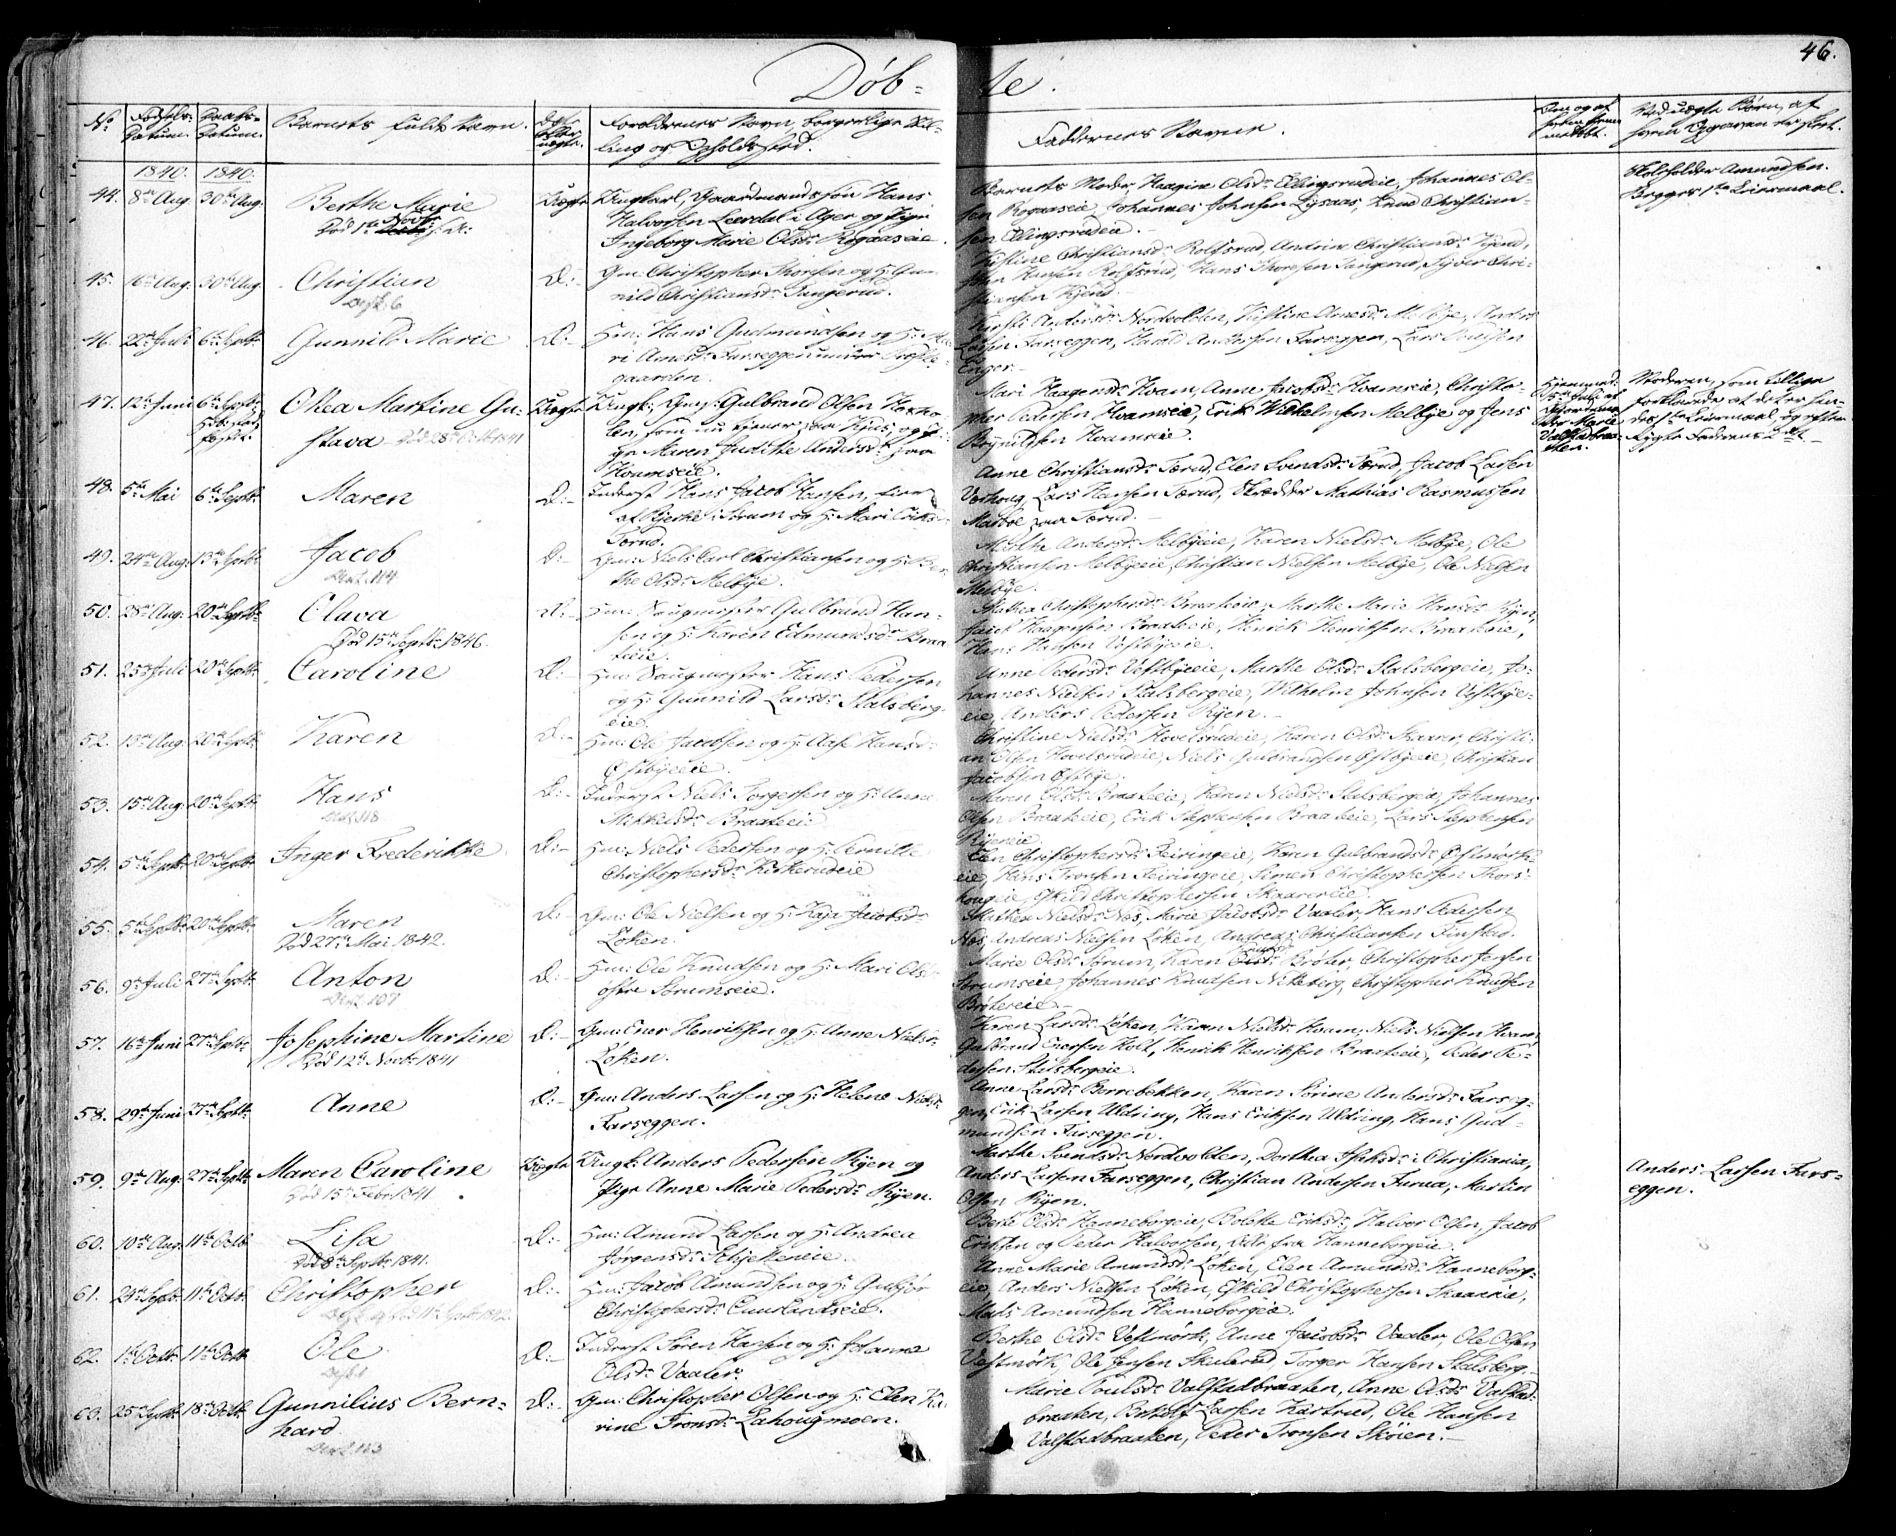 46.
Døb-te.
No
Fødsels-Datum.
Daabs-Datum.
Barnets fulde Navn.
Forældrenes Navn, borgerlige Stil-
ling og Opholdssted.
Faddernes Navne.
1840. 1840.
44. 8de Aug. 30te Aug. Berthe Marie
Død 1ste Novbr
Uægte Ungkarl, Gaardmandssøn Hans
Halvorsen Leerdal i Ager og Pige
Ingeborg Marie Olsdr Rogaaseie.
Barnets Moder, Olsdr Ellingsrudeie, Johannes Ol-
sen Rogaaseie, Johannes Johnsen Lysaas, Knud Christian-
sen Ellingsrudeie.
Skolholder Amundsen.
Begges 1ste Leiermaal.
45. 16de Aug. 30te Aug. Christian
D:-
Gm: Christopher Thorsen og H: Gun-
nild Christiansdr Tangerud.
Kistine Christiansdr Rolfsrud, Andrine Christiansdr Kjend,
Hansen Rolfsrud, Hans Thoresen Tangerud, Chri-
stiansen Kjend.
46. 22de Juli 6te Septr Gunnild Marie
D:-
Hm: Hans Gudmundsen og H: Ma-
ri Arnesdr Farseggen under Præste-
gaarden.
Andersdr Nordvolden, Kistine Arnesdr Melbye, Anders
Larsen Farseggen, Harald Andersen Farseggen, Lars Poulsen
Enger.
47. 12te Juni 6te Septr Olea Martine Gu-
stava Død 28de Octbr 1841
Uægte Ungk: Gulbrand Olsen
som nu tjener paa og Pi-
ge Maren Judithe Andersdr paa
Hvamseie.
Mari Haagensdr Hvam, Anne Jacobsdr Hvamseie, Christo-
pher Pedersen Hvamseie, Erik Wilhelmsen Melbye og Jens
Hvamseie.
Hjemmed:
Valstadbraa-
ten.
Moderen, som tillige
forklarede at det er hen-
des 1ste Leiermaal og efter
Sigte Faderens 2det
48. 5te Mai 6te Septr Maren
D:-
Inderst Hans Jacob Hansen,
af Bjerke i Sørum og H: Mari Eriks-
Tærud.
Anne Christiansdr Tærud, Elen Svendsdr Tærud, Jacob Larsen
Vorhoug, Lars Hansen Tærud, Skrædder Mathias Rasmussen
paa Tærud.
49. 24de Aug. 13de Septr Jacob
D:
Gm: Niels Carl Christiansen og H: Ber-
the Olsdr Melbye.
Marthe Andersdr Melbyeeie, Karen Nielsdr Melbye, Ole
Christiansen Melbyeeie, Christian Nielsen Melbye, Ole Nielsen
Melbye.
50. 28de Aug. 20de Septr Olava
Død 15de Septr 1846.
D:-
Hm: Saugmester Gulbrand Han-
sen og H: Karen Edmundsdr Braa-
teeie.
Mathea Christophersdr Braateeie, Marthe Marie Hansdr Ryen,
Jacob Haagensen Braateeie, Henrik Henriksen Braateeie,
Hans Hansen Vestbyeeie.
51. 25de Juli 20de Septr Caroline
D:-
Hm: Saugmester Hans Pedersen
og H: Gunnild Larsdr Stalsberg-
eie.
Anne Pedersdr Vestbyeeie, Marthe Olsdr Stalsbergeie, Jo-
hannes Nielsen Stalsbergeie, Wilhelm Johnsen Vestbye-
eie, Anders Pedersen Ryen.
52. 13de Aug. 20de Septr Karen
D:-
Hm: Ole Jacobsen og H: Aase Hansdr
Østbyeeie.
Christine Nielsdr Hovelsrudeie, Karen Olsdr Skaarer, Christi-
an Olsen Hovelsrudeie, Niels Gulbrandsen Østbyeeie, Christian
Jacobsen Østbye.
53. 15de Aug. 20de Septr Hans
D:-
Inderst Niels Torgersen og H: Anne
Mikkelsdr Braateeie.
Maren Olsdr Braateeie, Karen Nielsdr Stalsbergeie, Johannes
Olsen Braateeie, Erik Stephensen Braateeie, Lars Stephensen
Ryeneie.
54. 5te Septr 20de Septr Inger Frederikke
D:-
Hm: Niels Pedersen og H: Pernille
Christophersdr Kirkerudeie
Elen Christophersdr Feiringeie, Karen Gulbrandsdr Østmørk-
eie, Hans Tronsen Feiringeie, Simen Christophersen Thors-
hougeie, Eskild Christophersen Skaarereie.
55. 5te Septr 20de Septr Maren
Død 27de Mai 1842.
D:-
Gm: Ole Nielsen og H: Kaja Jacobsdr
Løken.
Mathea Nielsdr Næs, Marie Jacobsdr Vaaler, Hans Pedersen
Næs, Andreas Nielsen Løken, Andreas Christiansen Finstad.
56. 9de Juli 27de Septr Anton
D:-
Hm: Ole Knudsen og H: Mari Olsdr
østre Sørumseie.
Marie Olsdr Sørum, Karen Knudsdr Brøter, Christopher Jensen
Sørumseie, Johannes Knudsen Nitteberg, Christopher Knudsen
Brøtereie.
57. 16de Juni 27de Septr Josephine Martine
Død 12te Novbr 1841
D:-
Gm: Ener Henriksen og H: Anne Nielsdr
Løken.
Karen Larsdr Løken, Karen Nielsdr Hvam, Niels Nielsen Hvam,
Gulbrand Enersen Holt, Henrik Henriksen Braateeie, Peder Pe-
dersen Stalsbergeie.
58. 29de Juni 27de Septr Anne
D:-
Gm: Anders Larsen og H: Helene Nielsdr
Farseggen.
Anne Larsdr Berrebekken, Karen Sørine Andersdr Farseg-
gen, Erik Larsen Uldring, Hans Eriksen Uldring, Hans Gud-
mundsen Farseggen.
59. 9de Aug. 27de Septr Maren Caroline
Død 15de Febr 1841.
Uægte Ungk: Anders Pedersen Ryen og
Pige Anne Marie Pedersdr Ryen.
Marthe Svendsdr Nordvolden, Dorthea Isaksdr i Christiania,
Anders Larsen Farseggen, Christian Andersen Furua, Martin
Olsen Ryen.
Anders Larsen Fars-
eggen.
60. 10de Aug. 11te Octb Lisa
Død 8de Septr 1841.
D:-
Hm: Amund Larsen og H: Andrea
Jørgensdr Schjetteneie.
Berte Olsdr Hanneborgeie, Bolette Eriksdr, Halvor Olsen, Jacob
Eriksen og Peder Halvorsen, alle fra Hanneborgeie.
61. 24de Septr 11te Octb. Christopher
D:-
Hm: Jacob Amundsen og H: Gubjør
Christophersdr
Anne Marie Amundsdr Løken, Elen Amundsdr Hanneborg-
eie, Anders Nielsen Løken, Eskild Christophersen Skaareie,
Mads Amundsen Hanneborgeie.
62. 1ste Octbr 11te Octb Ole
D:-
Inderst Søren Hansen og H: Johanne
Olsdr Vaaler.
Berthe Olsdr Vestmørk, Anne Jacobsdr Vaaler, Ole Olsen
Vestmørk, Ole Jensen Skulerud, Torger Hansen Stalsberg.
63. 25de Septr 18de Octb. Gunnilius Bern-
hard
D:-
Gm: Christopher Olsen og H: Elen Ka-
rine Tronsdr Lahougmoen.
Marie Poulsdr Valstadbraaten, Anne Olsdr Valstad-
braaten, Larsen Ole Hansen
Valstadbraaten, Peder Tronsen Skøien.